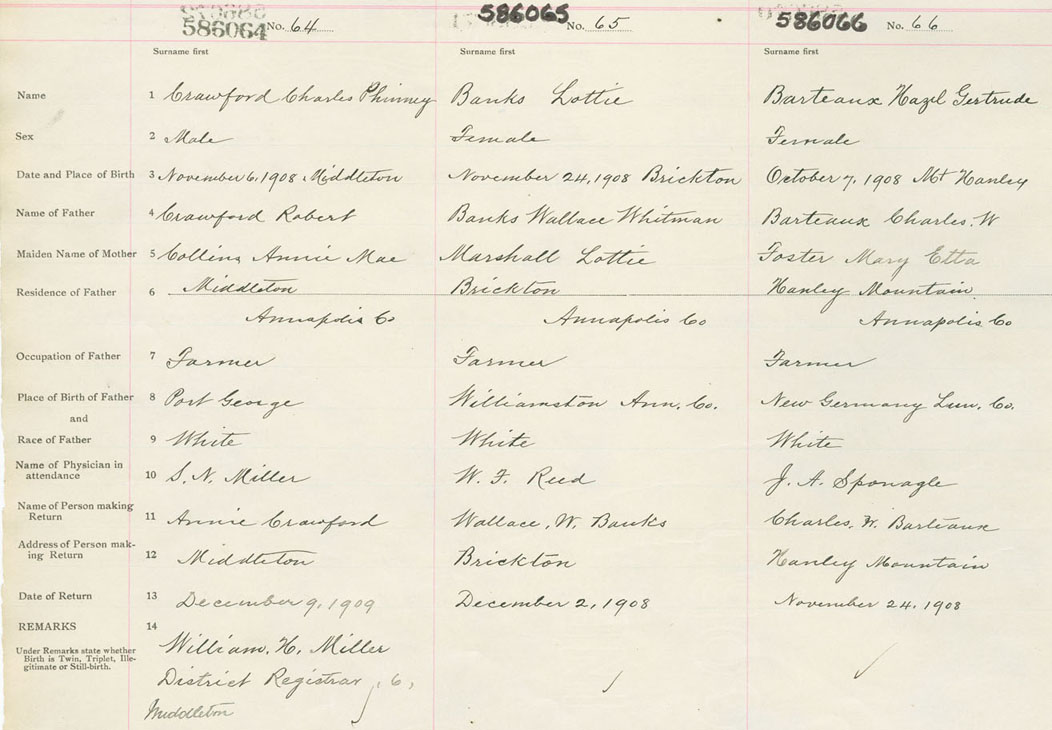 586064 No. 64 586065 No. 65 586066 No. 66
Surname first Surname first Surname first
Name 1 Crawford Charles Phinney Banks Lottie Barteaux Hazel Gertrude
Sex 2 Male Female Female
Date and Place of Birth 3 November 6, 1908 Middleton November 24, 1908 Brickton October 7, 1908 Mt Hanley
Name of Father 4 Crawford Robert Banks Wallace Whitman Barteaux Charles. W
Maiden Name of Mother 5 Collins Annie Mae Marshall Lottie Foster Mary Etta
Residence of Father 6 Middleton Brickton Hanley Mountain
Annapolis Co Annapolis Co Annapolis Co
Occupation of Father 7 Farmer Farmer Farmer
Place of Birth of Father 8 Port George Williamston Ann. Co. New Germany Lun. Co.
and
Race of Father 9 White White White
Name of Physician in
attendance 10 S. N. Miller W. F. Reed J. A. Sponagle
Name of Person making
Return 11 Annie Crawford Wallace. W. Banks Charles. W. Barteaux
Address of Person mak-
ing Return 12 Middleton Brickton Hanley Mountain
Date of Return 13 December 9, 1909 December 2, 1908 November 24, 1908
REMARKS 14
Under Remarks state whether
Birth is Twin, Triplet, Ille-
gitimate or Still-birth.
William. H. Miller
District Registrar
Middleton